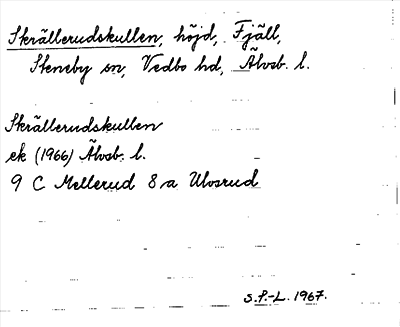 Skrällerudskullen, höjd, Fjäll,
Steneby sn, Vedbo hd, Älvsb. l.
Skrällerudskullen
ek (1966) Älvsb. l.
9 C Mellerud 8 a Ulvsrud
S.P.-L. 1967.